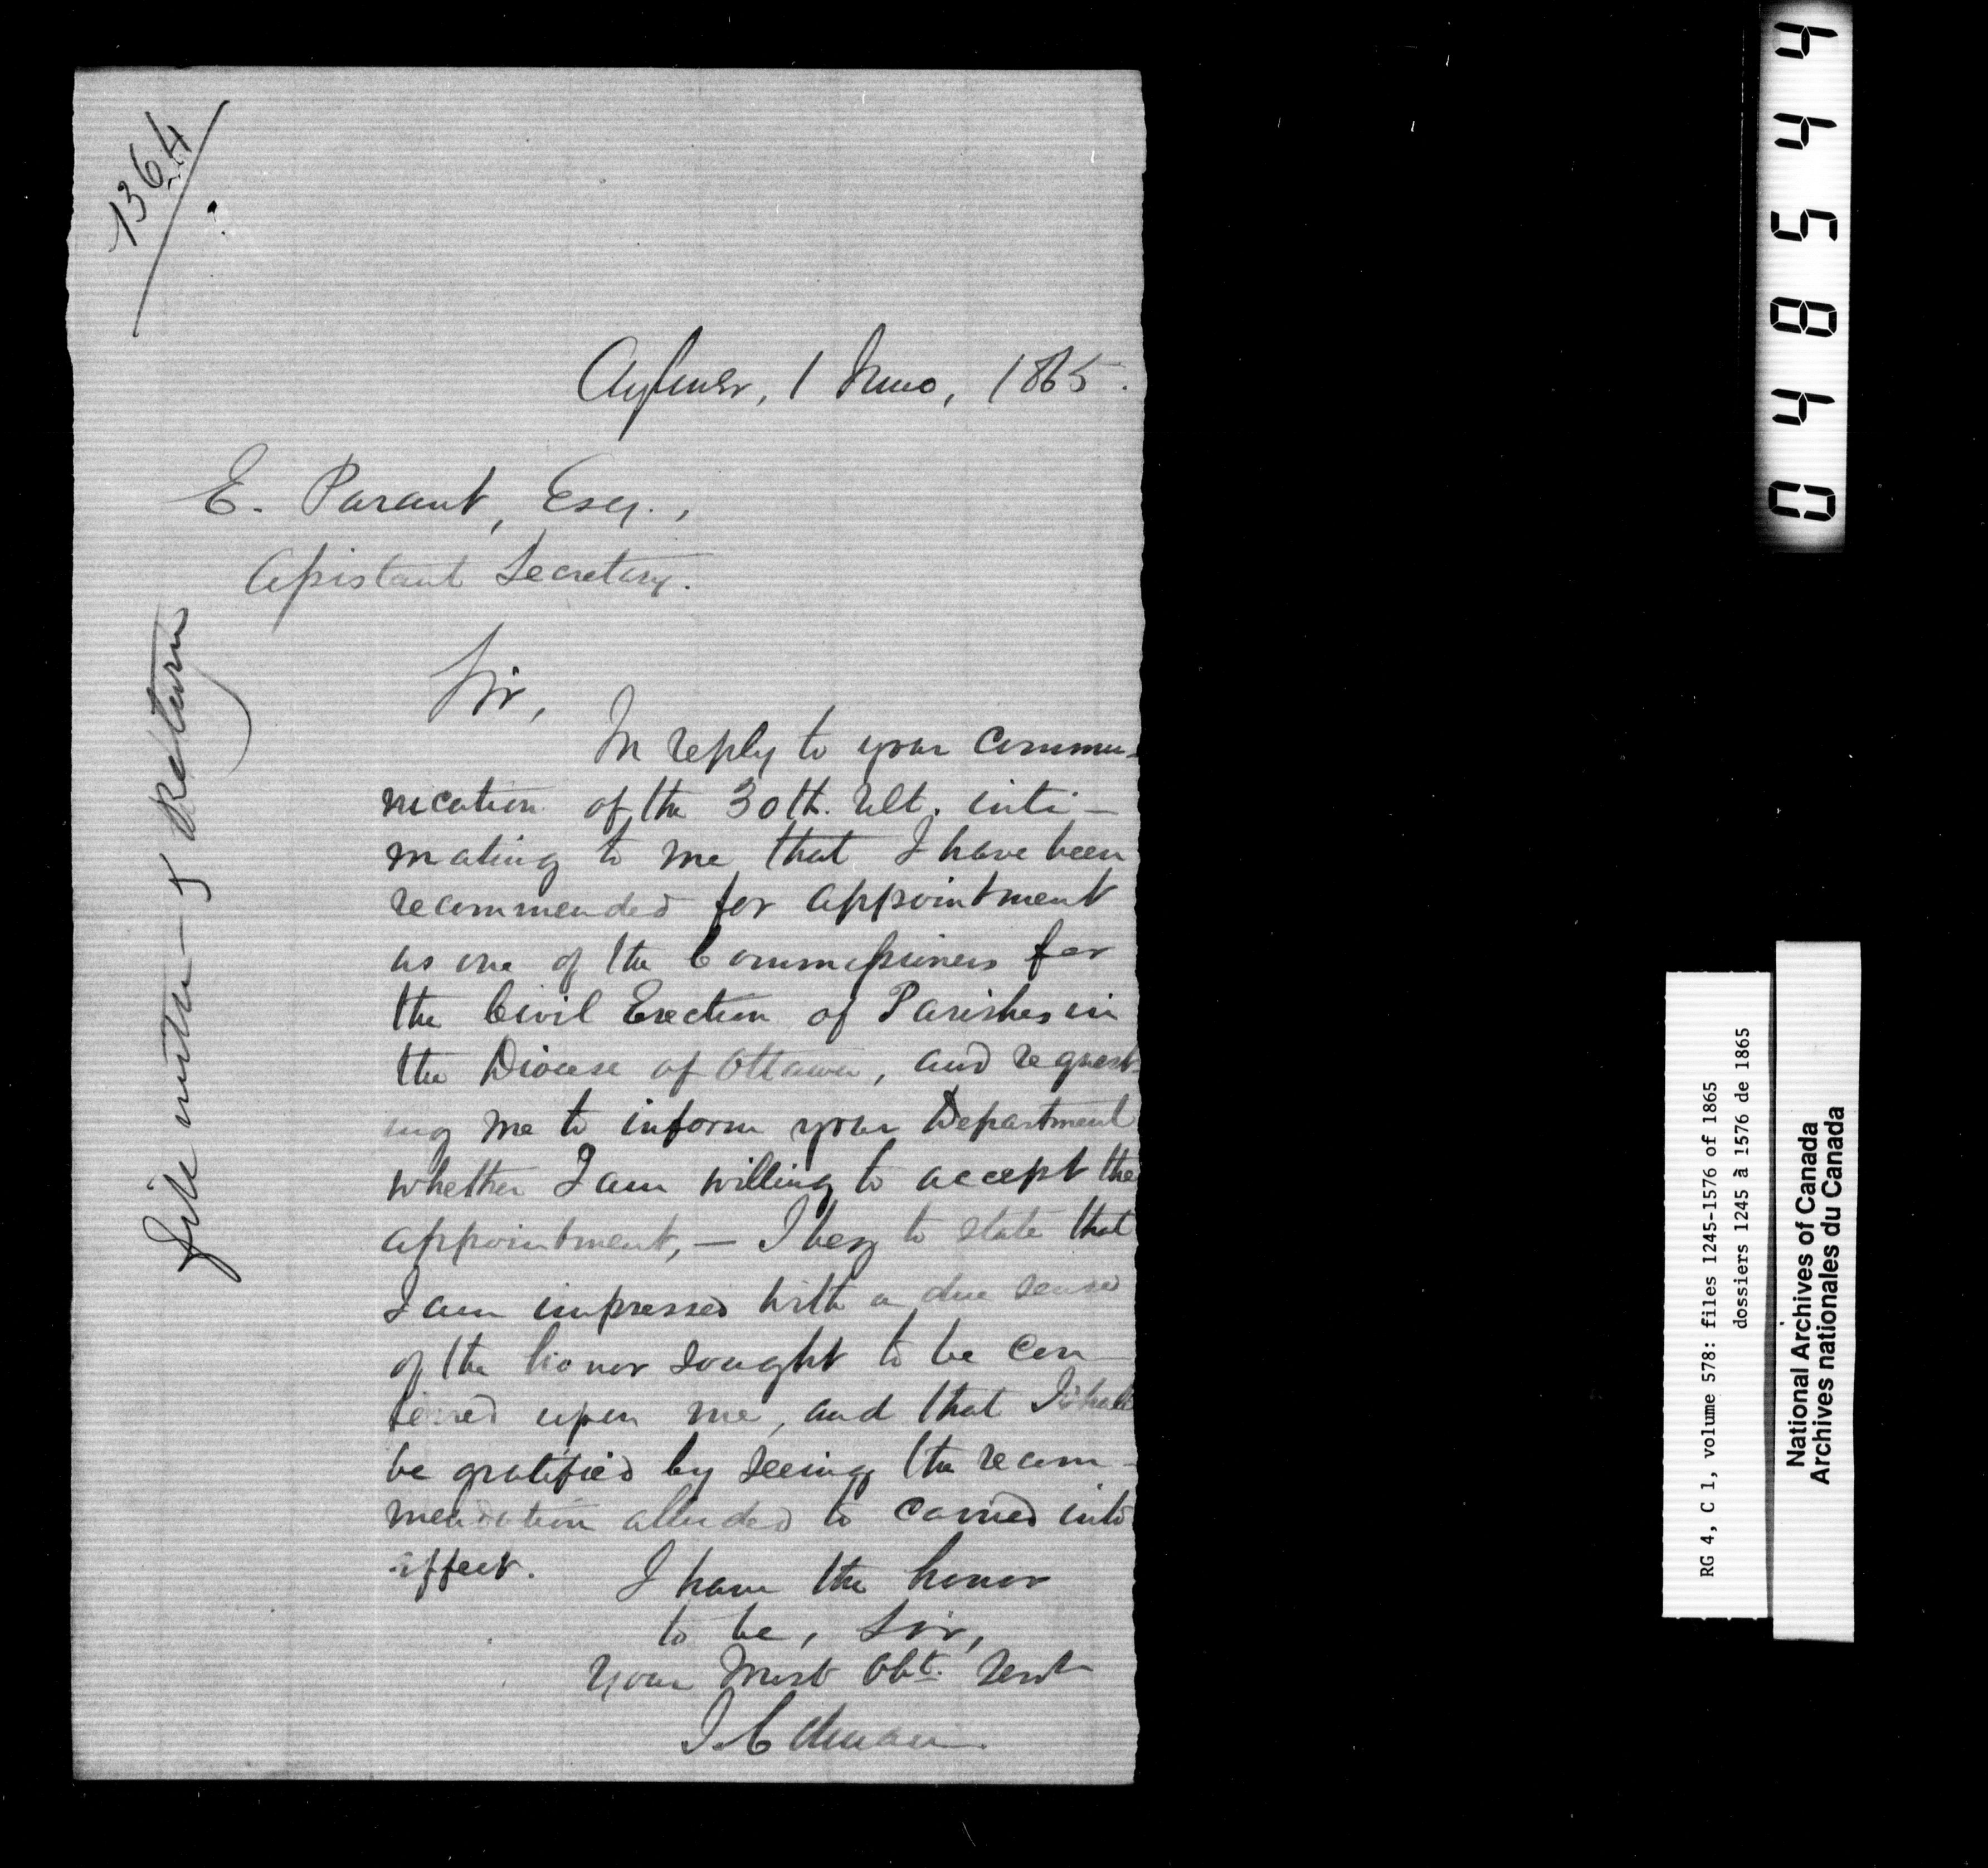 1364
Aylmer, 1 June, 1865.
E. Parent, Esq.,
Assistant Secretary.
Sir,
In reply to your commu-
nication of the 30th. Ult. inti-
mating to me that I have been
recommended for appointment
as one of the Commissioners for
the Civil Erection of Parishes in
the Diocese of Ottawa, and request-
ing me to inform your Department
whether I am willing to accept the
appointment, — I beg to state that
I am impressed with a due sense
of the honor sought to be con-
ferred upon me, and that I shall
be gratified by seeing the recom-
mendation alluded to carried into
effect.
I have the honor
to be, Sir,
Your Most Obt. Servt
J.
file with & Return
048544
RG 4, C 1, volume 578: files 1245-1576 of 1865
dossiers 1245 à 1576 de 1865
National Archives of Canada
Archives nationales du Canada